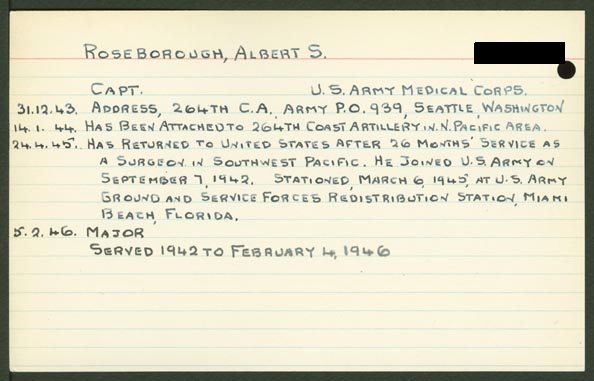 ROSEBOROUGH, ALBERT S.
CAPT. U.S. ARMY MEDICAL CORPS.
31.12.43. ADDRESS, 264TH C.A., ARMY P.O. 939, SEATTLE, WASHINGTON
14.1.44. HAS BEEN ATTACHED TO 264TH COAST ARTILLERY IN N. PACIFIC AREA.
24.4.45. HAS RETURNED TO UNITED STATES AFTER 26 MONTHS' SERVICE AS
A SURGEON IN SOUTHWEST PACIFIC. HE JOINED U.S. ARMY ON
SEPTEMBER 7, 1942. STATIONED, MARCH 6, 1945, AT U.S. ARMY
GROUND AND SERVICE FORCES REDISTRIBUTION STATION, MIAMI
BEACH, FLORIDA.
5.2.46. MAJOR
SERVED 1942 TO FEBRUARY 4, 1946